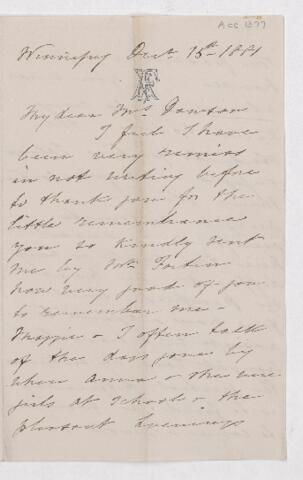 Acc 1277
Winnipeg Oct. 15th 1881
My dear Mrs Dawson
I feel I have
been very remiss
in not writing before
to thank you for the
little remembrance
you so kindly sent
me by Mr.
how very good of you
to remember me -
Maggie & I often talk
of the days gone by
when Anna & she were
girls at School & the
pleasant Evenings